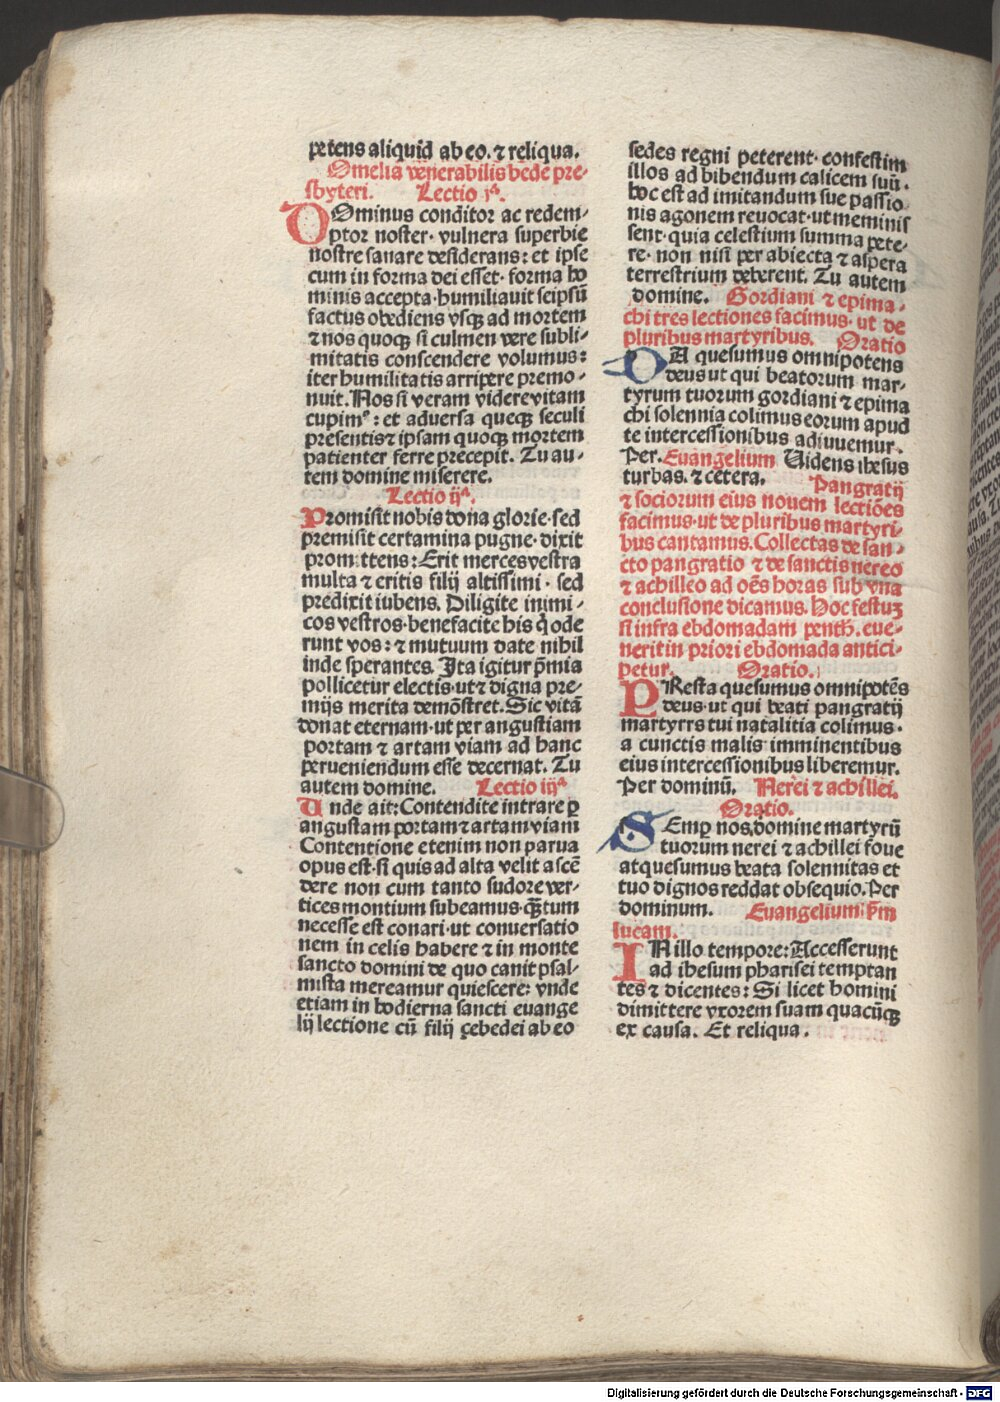 petens aliquid ab eo. ⁊ reliqua.
Omelia venerabilis bede pre-
sbyteri. Lectio jᵃ.
DOminus conditor ac redem-
ptor noster· vulnera superbie
nostre sanare desiderans: et ipse
cum in forma dei esset· forma ho
minis accepta·humiliauit seipsū
factus obediens vsqꝫ ad mortem
⁊ nos quoqꝫ si culmen vere subli-
mitatis conscendere volumus:
iter humilitatis arripere premo-
nuit. Nos si veram videre vitam
cupimꝰ: et aduersa queqꝫ seculi
presentis ⁊ ipsam quoqꝫ mortem
patienter ferre precepit. Tu au-
tem domine miserere.
Lectio ijᵃ.
Promisit nobis dona glorie·sed
premisit certamina pugne· dixit
promittens: Erit merces vestra
multa ⁊ eritis filij altissimi· sed
predixit iubens. Diligite inimi-
cos vestros·benefacite his q̇ ode
runt vos: ⁊ mutuum date nihil
inde sperantes. Ita igitur p̄mia
pollicetur electis·ut ⁊ digna pre-
mijs merita demōstret. Sic vitā
donat eternam·ut per angustiam
portam ⁊ artam viam ad hanc
perueniendum esse decernat. Tu
autem domine. Lectio iijᵃ
Unde ait: Contendite intrare ꝑ
angustam portam ⁊ artam viam
Contentione etenim non parua
opus est·si quis ad alta velit ascē
dere non cum tanto sudore ver-
tices montium subeamus·qꝫtum
necesse est conari·ut conuersatio
nem in celis habere ⁊ in monte
sancto domini de quo canit psal-
mista mereamur quiescere: vnde
etiam in hodierna sancti euange
lij lectione cū filij çebedei ab eo
sedes regni peterent· confestim
illos ad bibendum calicem suū·
hoc est ad imitandum sue passio
nis agonem reuocat·ut meminis
sent· quia celestium summa pete-
re· non nisi per abiecta ⁊ aspera
terrestrium deberent. Tu autem
domine. Gordiani ⁊ epima-
chi tres lectiones facimus· ut de
pluribus martyribus. Oratio
DA quesumus omnipotens
deus ut qui beatorum mar-
tyrum tuorum gordiani ⁊ epima
chi solennia colimus eorum apud
te intercessionibus adiuuemur.
Per. Euangelium Uidens ihesus
turbas. ⁊ cetera. Pangratij
⁊ sociorum eius nouem lectiōes
facimus·ut de pluribus martyri-
bus cantamus. Collectas de san-
cto pangratio ⁊ de sanctis nereo
⁊ achilleo ad oēs horas sub vna
conclusione dicamus. Hoc festuꝫ
si infra ebdomadam penth. eue-
nerit in priori ebdomada antici-
petur. Oratio.
PResta quesumus omnipotēs
deus·ut qui beati pangratij
martyrrs tui natalitia colimus·
a cunctis malis imminentibus
eius intercessionibus liberemur.
Per dominū. Nerei ⁊ achillei.
Oratio.
SEmꝑ nos domine martyrū
tuorum nerei ⁊ achillei foue
at quesumus beata solennitas et
tuo dignos reddat obsequio. Per
dominum. Euangelium p̄m
lucam.
IN illo tempore: Accesserunt
ad ihesum pharisei temptan
tes ⁊ dicentes: Si licet homini
dimittere vxorem suam quacūqꝫ
ex causa. Et reliqua.
Digitalisierung gefördert durch die Deutsche Forschungsgemeinschaft - DFG